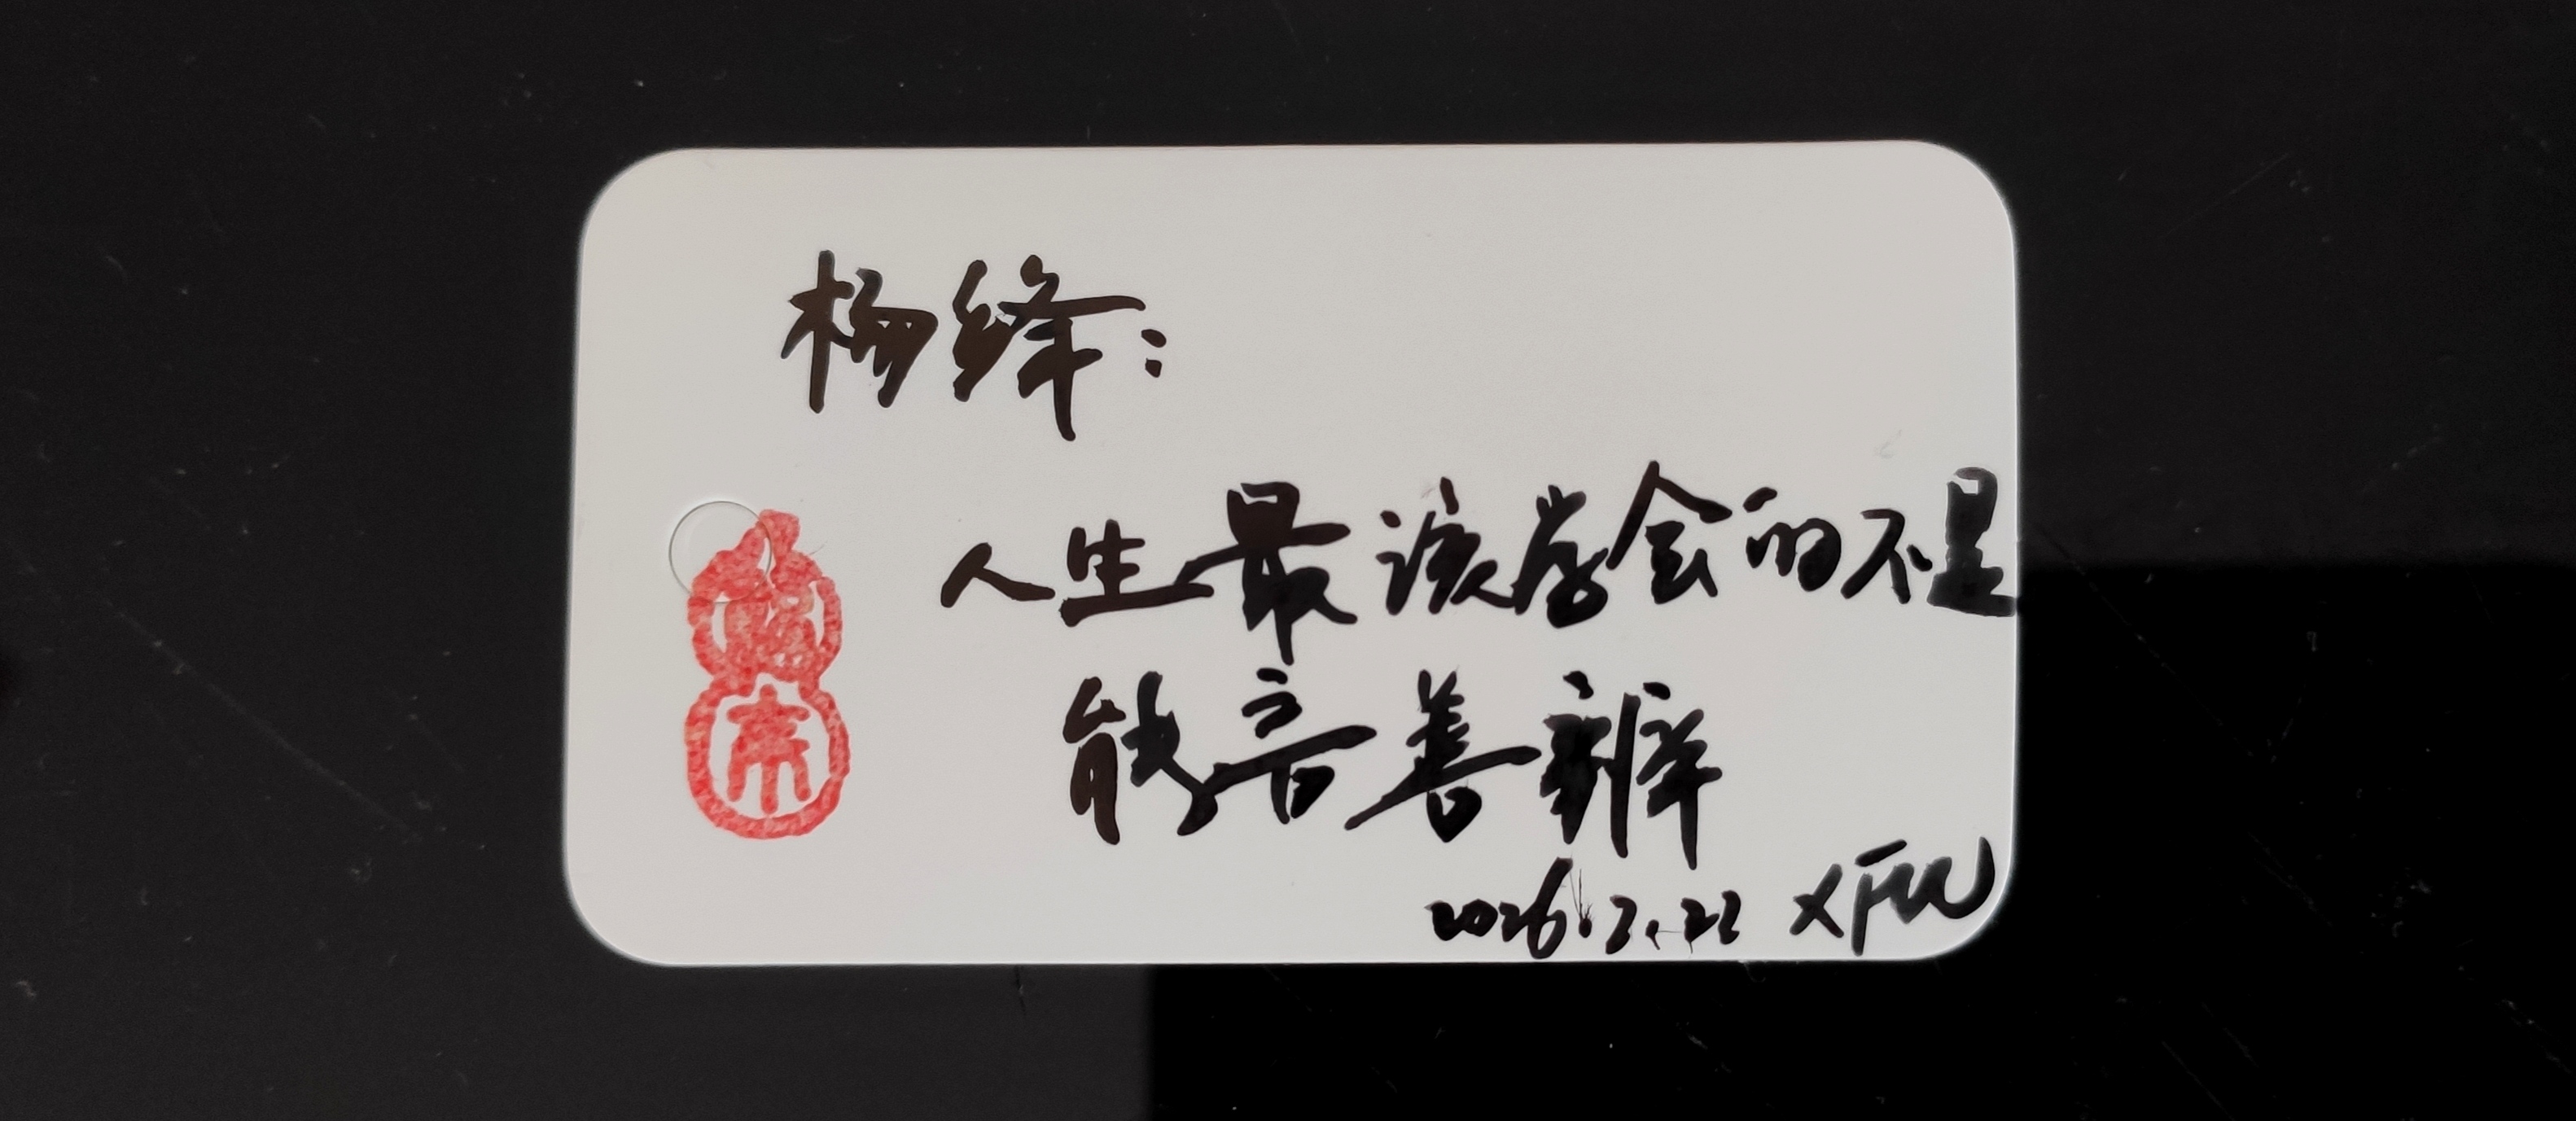 杨绛：
人生最该学会的不是
能言善辩
2026.2.22 XFW